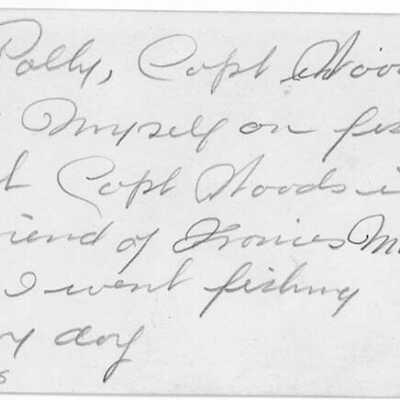 Polly, Capt Woods
Myself on fis
Capt Woods i
riend of Fronies M
I went fishing
day